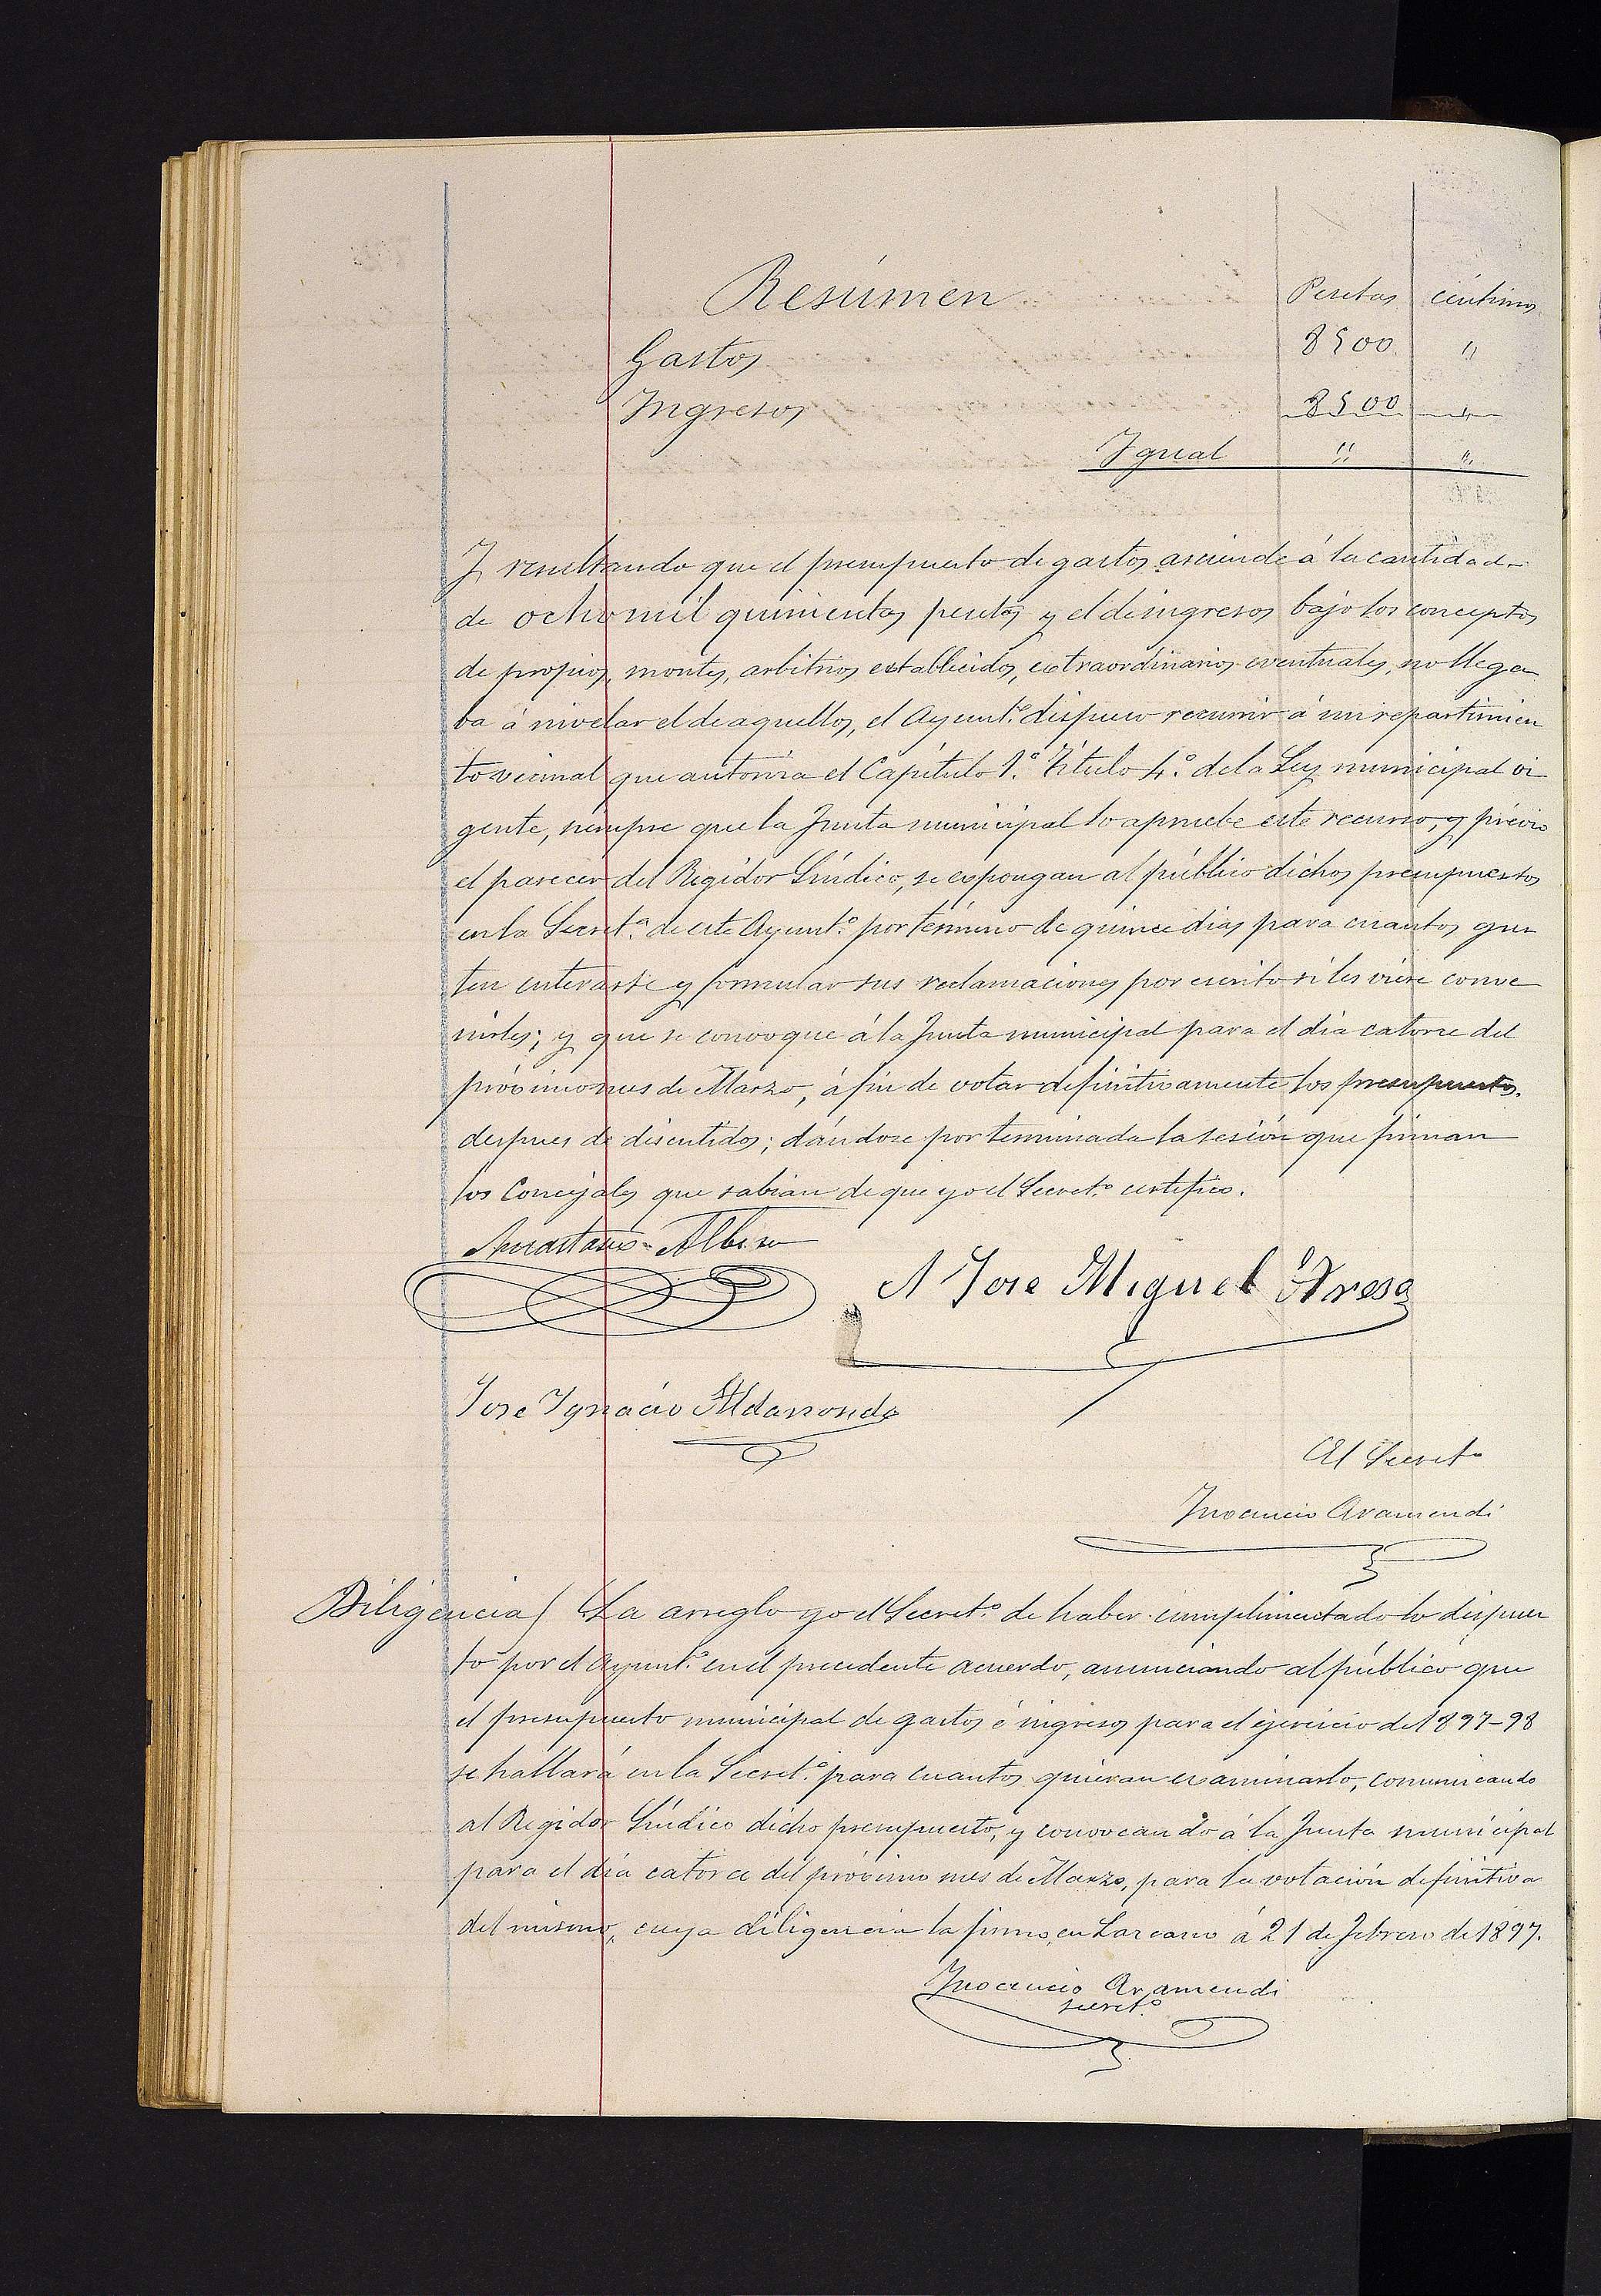 Resúmen Pesetas céntimos
Gastos 8500 "
Ingresos 8500 "
Igual " "
Y resultando que el presupuesto de gastos asciende á la cantidad
de ocho mil quinientas pesetas y el de ingresos bajo los conceptos
de propios, montes, arbitrios establecidos, extraordinarios eventuales, no llega
ba á nivelar el de aquellos, el Ayunt.º dispuso recurrir á un repartimien
to vecinal que autoriza el Capítulo 1.º Título 4.º de la Ley municipal vi
gente, siempre que la Junta municipal lo apruebe este recurso, y prévio
el parecer del Regidor Síndico, se expongan al público dichos presupuestos
en la Secret.ª de este Ayunt.º por término de quince dias para cuantos gus
ten enterarse y formular sus reclamaciones por escrito si les viere conve
nirles; y que se convoque á la Junta municipal para el dia catorce del
próximo mes de Marzo, á fin de votar definitivamente los presupuestos.
despues de discutidos; dándose por terminada la sesión que firman
los Concejales que sabian de que yo el Secret.º certifico.
Anastasio Albisu
A José Miguel
José Ignacio Aldasoro
El Secret.º
Inocencio Aramendi
Diligencia) La arreglo yo el Secret.º de haber cumplimentado lo dispues
to por el Ayunt.º en el precedente acuerdo, anunciando al público que
el presupuesto municipal de gastos é ingresos para el ejercicio de 1897-98
se hallará en la Secret.ª para cuantos quieran examinarlo, comunicando
al Regidor Síndico dicho presupuesto, y convocando á la Junta municipal
para el día catorce del próximo mes de Marzo, para la votación definitiva
del mismo, cuya diligencia la firmo, en Lazcano á 21 de Febrero de 1897.
Inocencio Aramendi
secret.º